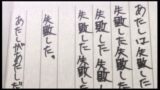 あたしは失敗した
失敗した失敗した
失敗した失敗した
失敗した
失敗した。
あたしがあたしだ